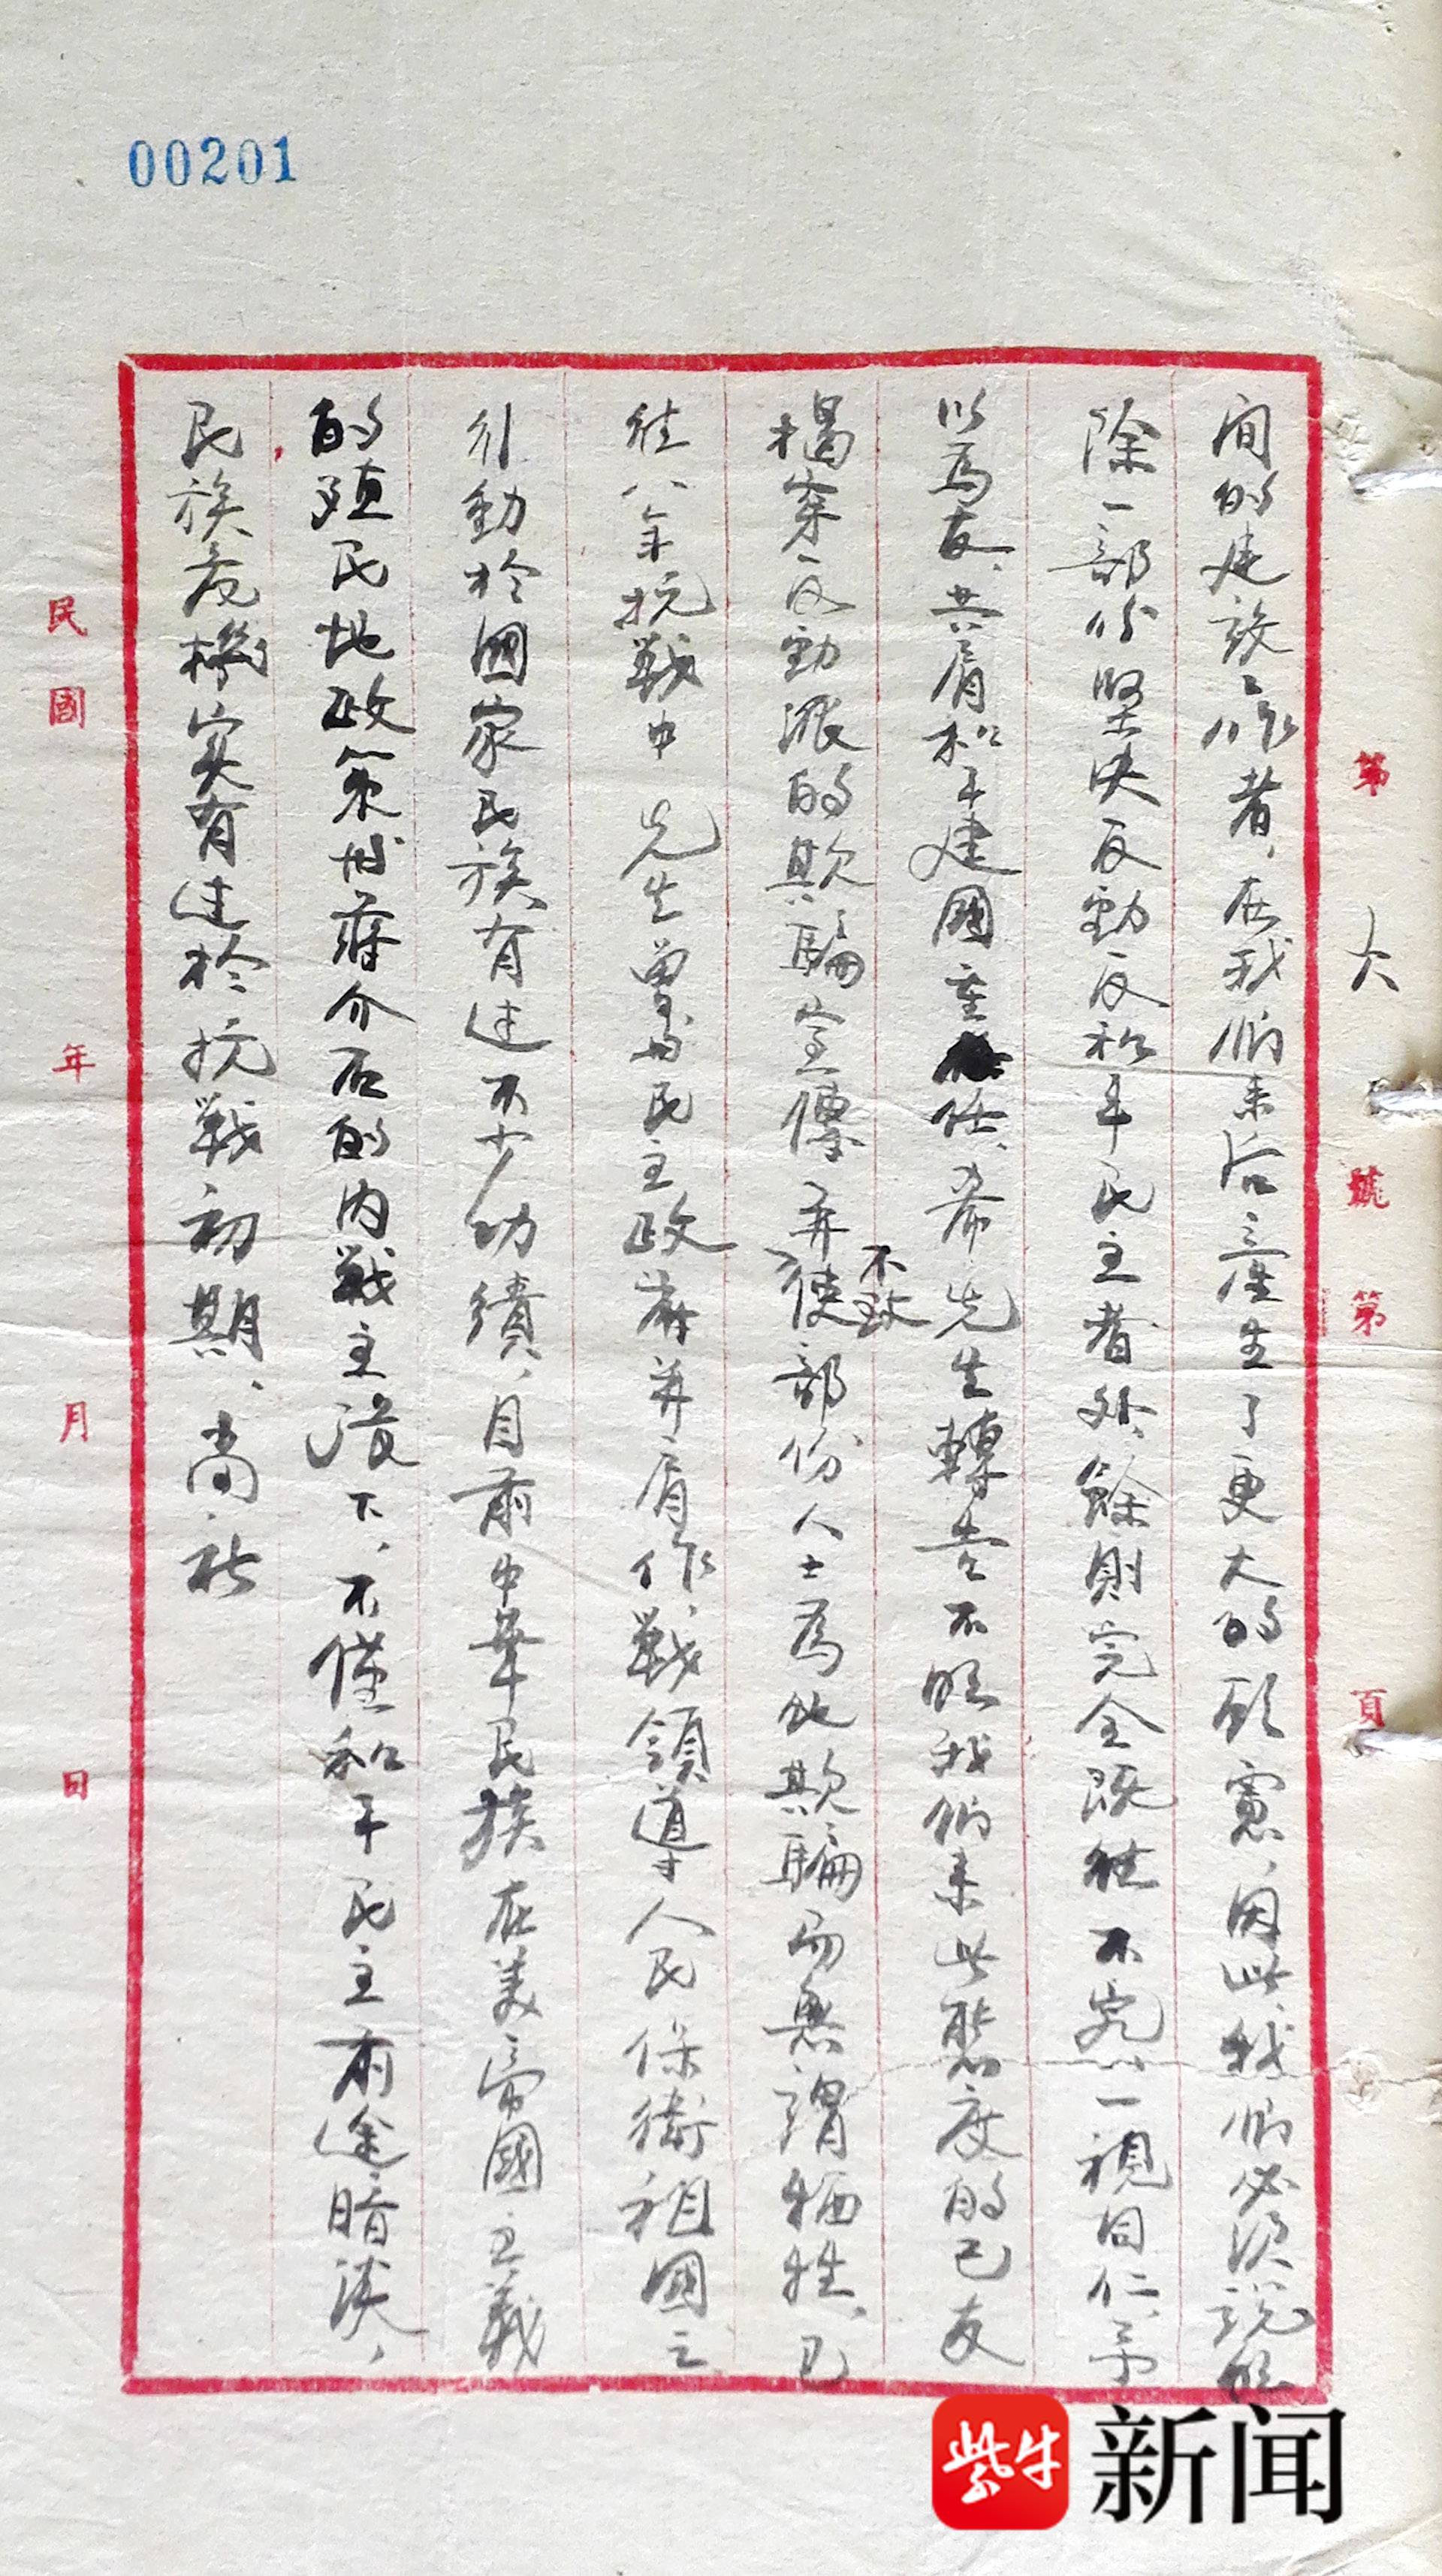 00201
第 六 號 第 頁
间的建設工作者,在我們来后產生了更大的顧慮,因此,我們必須説明
除一部份堅決反動反和平民主者外,餘則完全既往不究,一視同仁,予
以為友,共肩和平建國重任,希先生轉告不明我們来此態度的己友
揭穿反動派的欺騙宣傳,並不致使一部份人士為他欺騙而無謂牺牲,已
往八年抗戰中 先生曾與民主政府并肩作戰領導人民保衛祖國之
引動於國家民族有过不少功績,目前中華民族在美帝國主義
的殖民地政策 蔣介石的内戰主 下,不僅和平民主前途暗淡,
民族危機实有过於抗戰初期,尚祈
民國 年 月 日
紫牛 新闻